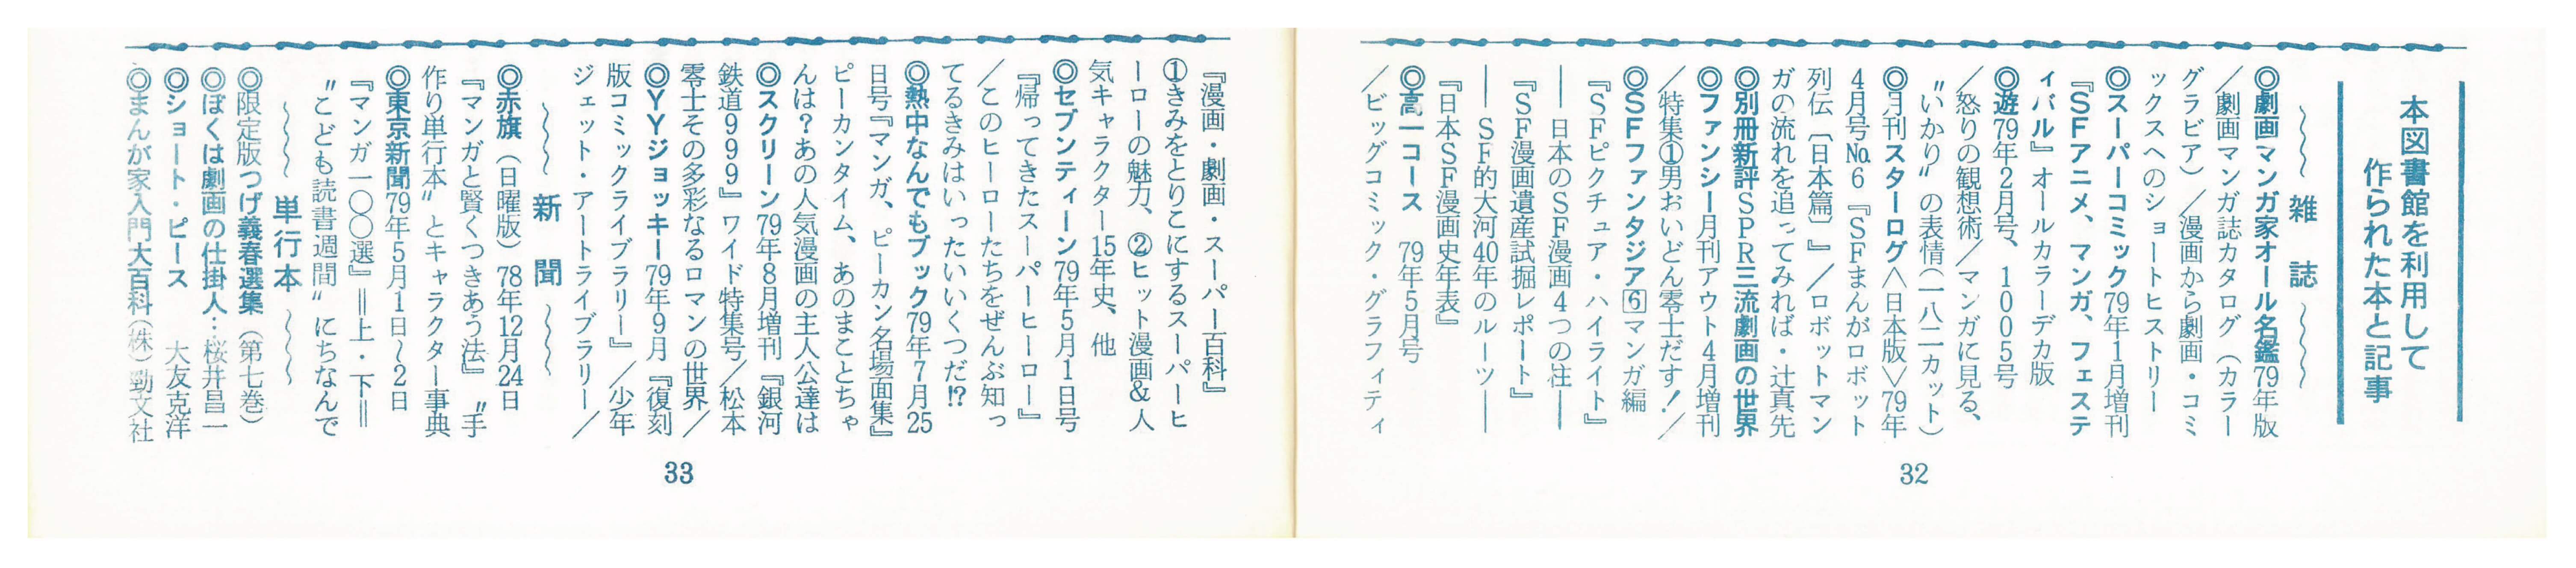 本図書館を利用して
作られた本と記事
〜〜〜 雑 誌 〜〜〜
◎劇画マンガ家オール名鑑79年版
／劇画マンガ誌カタログ（カラー
グラビア）／漫画から劇画・コミ
ックスへのショートヒストリー
◎スーパーコミック79年1月増刊
『SFアニメ、マンガ、フェステ
ィバル』オールカラーデカ版
◎遊79年2月号、1005号
／怒りの観想術／マンガに見る、
〝いかり〟の表情（一八二カット）
◎月刊スターログ＜日本版＞79年
4月号No.6『SFまんがロボット
列伝〔日本篇〕』／ロボットマン
ガの流れを追ってみれば・辻真先
◎別冊新評SPR三流劇画の世界
◎ファンシー月刊アウト4月増刊
／特集①男おいどん零士だす！／
◎SFファンタジア⑥マンガ編
『SFピクチュア・ハイライト』
―日本のSF漫画4つの柱―
『SF漫画遺産試掘レポート』
―SF的大河40年のルーツ―
『日本SF漫画史年表』
◎高一コース 79年5月号
／ビッグコミック・グラフィティ
32
『漫画・劇画・スーパー百科』
①きみをとりこにするスーパーヒ
ーローの魅力、②ヒット漫画&人
気キャラクター15年史、他
◎セブンティーン79年5月1日号
『帰ってきたスーパーヒーロー』
／このヒーローたちをぜんぶ知っ
てるきみはいったいいくつだ!?
◎熱中なんでもブック79年7月25
日号『マンガ、ピーカン名場面集』
ピーカンタイム、あのまことちゃ
んは？あの人気漫画の主人公達は
◎スクリーン79年8月増刊『銀河
鉄道999』ワイド特集号／松本
零士その多彩なるロマンの世界／
◎YYジョッキー79年9月『復刻
版コミックライブラリー』／少年
ジェット・アートライブラリー／
〜〜〜 新 聞 〜〜〜
◎赤旗（日曜版）78年12月24日
『マンガと賢くつきあう法』〝手
作り単行本〟とキャラクター事典
◎東京新聞79年5月1日〜2日
『マンガ一〇〇選』＝上・下＝
〝こども読書週間〟にちなんで
〜〜〜 単行本 〜〜〜
◎限定版つげ義春選集（第七巻）
◎ぼくは劇画の仕掛人…桜井昌一
◎ショート・ピース 大友克洋
◎まんが家入門大百科（株）勁文社
33